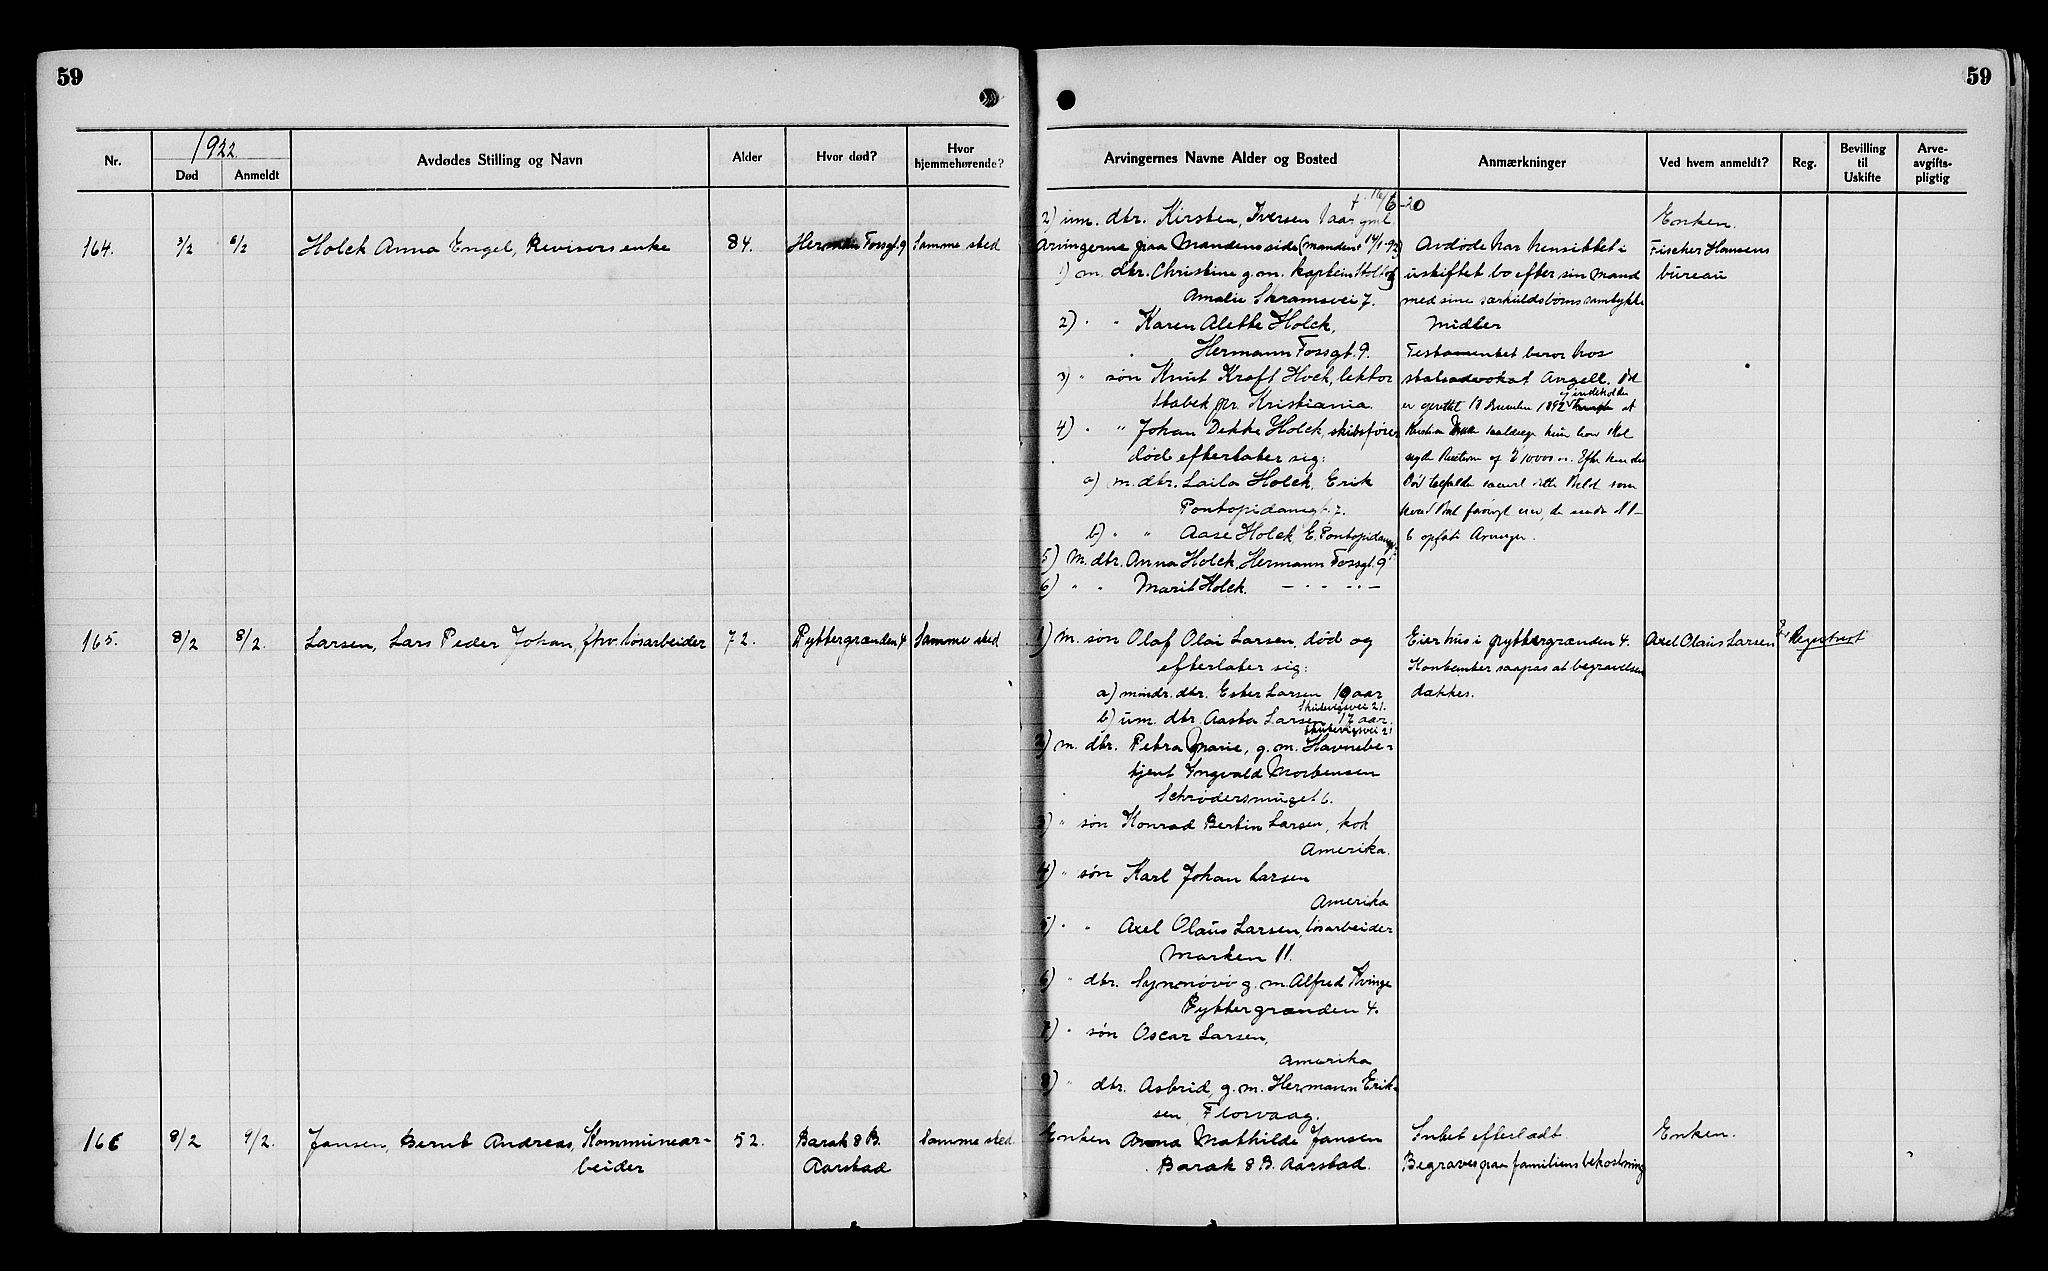 59
59
Nr.
1922
Død
Anmeldt
Avdødes Stilling og Navn
Alder
Hvor død?
Hvor hjemmehørende?
Arvingernes Navne Alder og Bosted
Anmærkninger
Ved hvem anmeldt?
Reg.
Bevilling til Uskifte
Arve-avgifts-pligtig
164. 3/2 6/2 Holck Anna Engel, Revisors enke 84. Herman Fossgt. 9 Samme sted
† 16/6-20
2) um. dtr. Kirsten, Iversen 1 aar gml
Arvingerne paa Mandens side (manden † 14/1-92)
1) m. dtr. Christine g. m. kaptein Stoltz
Amalie Skramsvei 7.
2) " " Karen Alette Holck,
Hermann Fossgt. 9.
3) " søn Knut Kraft Holck, lektor
Stabek pr. Kristiania.
4) " " Johan Dekke Holck, skibsfører
død efterlater sig:
a) m. dtr. Laila Holck, Erik
Pontopidansgt. 7.
b) " " Aase Holck, E. Pontopidansgt.
5) M. dtr. Anna Holck, Hermann Fossgt. 9
6) " " Marit Holck. — " — " —
Avdøde har hensittet i
uskiftet bo efter sin mand
med sine særkuldsbørns samtykke
Midler
Testamentet beror hos
statsadvokat Angell.
er oprettet 18 December 1892
6 opførte Arvinger.
Enken.
Fischer Hansens
bureau
165. 8/2 8/2. Larsen, Lars Peder Johan, fhv. løsarbeider 72. Pyttergrænden 4 Samme sted
1) M. søn Olaf Olai Larsen, død og
efterlater sig:
a) mindr. dtr. Ester Larsen 19 aar
Skutevigsvei 21.
b) um. dtr. Aasta Larsen 17 aar.
Skutevigsvei 21
2) m. dtr. Petra Marie, g. m. Havnebe-
tjent Ingvald Mortensen
Schrødersmuget 6.
3) " søn Konrad Bertin Larsen, kok
Amerika.
4) " søn Karl Johan Larsen
Amerika
5) " " Axel Olaus Larsen, løsarbeider
Marken 11.
6) " dtr. Synnøve g. m. Alfred Kvinge
Pyttergrænden 4.
7) " søn Oscar Larsen,
Amerika
8) " dtr. Astrid, g. m. Hermann Erik-
sen, Florvaag.
Eier hus i Pyttergrænden 4.
Kontanter saapas at begravelsen
dækkes.
Axel Olaus Larsen
Registrert
166 8/2 9/2. Jansen, Bernt Andreas, Kommunear-
beider
52.
Barak 8 B.
Aarstad
Samme sted.
Enken Anna Mathilde Jansen
Barak 8 B. Aarstad.
Intet efterladt.
Begraves paa familiens bekostning
Enken.